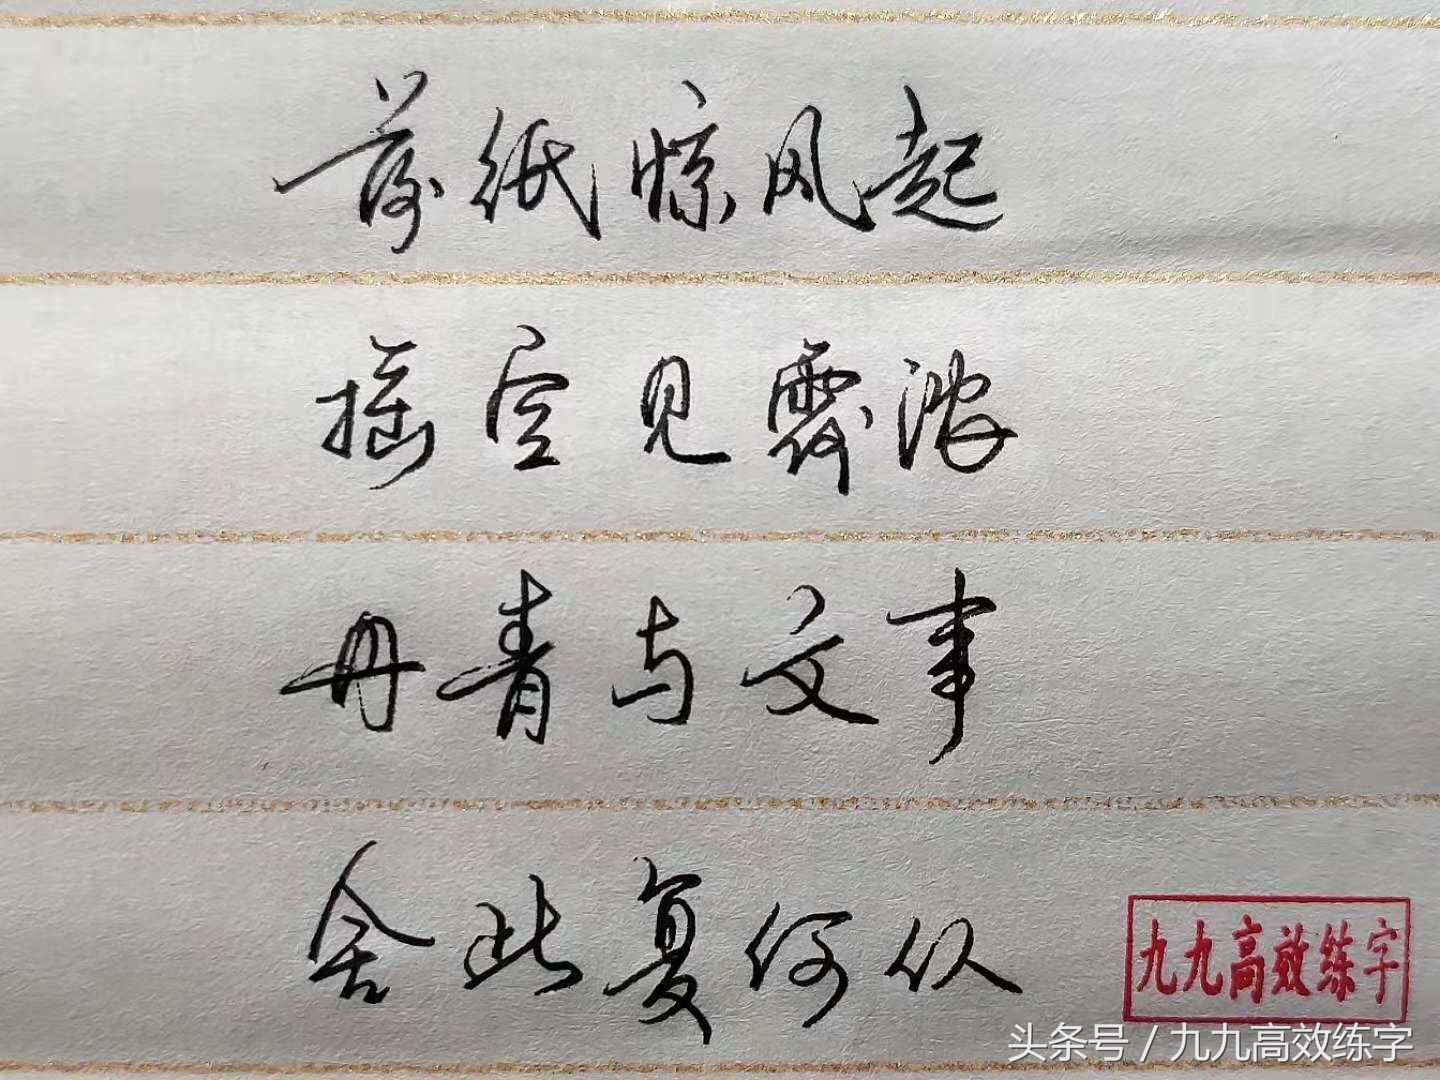 落纸惊风起
摇空见露浓
丹青与文事
舍此复何从
九九高效练字
头条号 / 九九高效练字